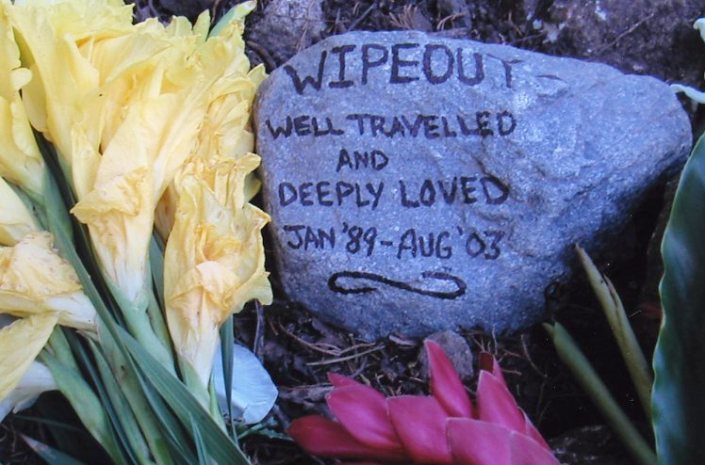 WIPEOUT
WELL TRAVELLED
AND
DEEPLY LOVED
JAN '89-AUG '03